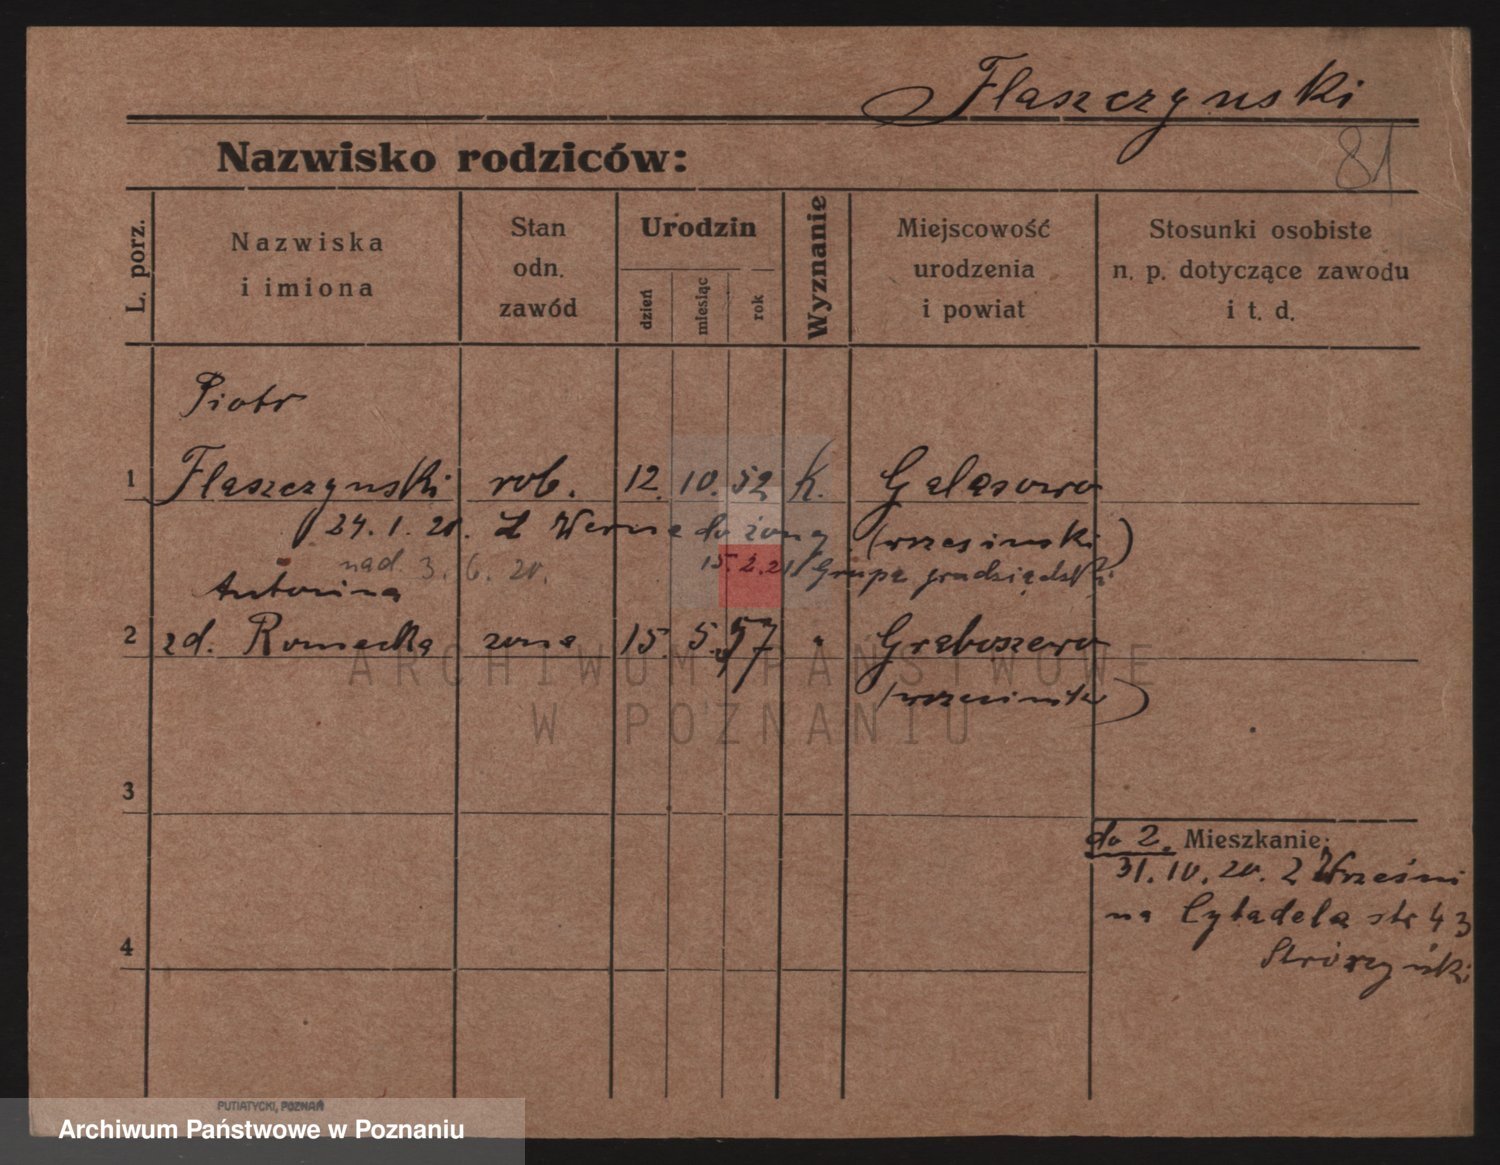 Flaszczynski
Nazwisko rodziców:
81
L. porz.
Nazwiska
i imiona
Stan
odn.
zawód
Urodzin
dzień
miesiąc
rok
Wyznanie
Miejscowość
urodzenia
i powiat
Stosunki osobiste
n. p. dotyczące zawodu
i t. d.
Piotr
1 Flaszczynski rob. 12. 10. 52 k. Galąsowo
24. 1. 20. do żony (wrzesinski)
nad 3. 6. 20. 15. 2. 21 Grupa grudziądzki
Antonina
2 zd. żona 15. 5. 57 " Graboszewo
3
do 2. Mieszkanie:
31. 10. 20. z Wrześni
na Cytadela str 43
Stróżyński
4
ARCHIWUM PAŃSTWOWE
W POZNANIU
PUTIATYCKI, POZNAŃ
Archiwum Państwowe w Poznaniu